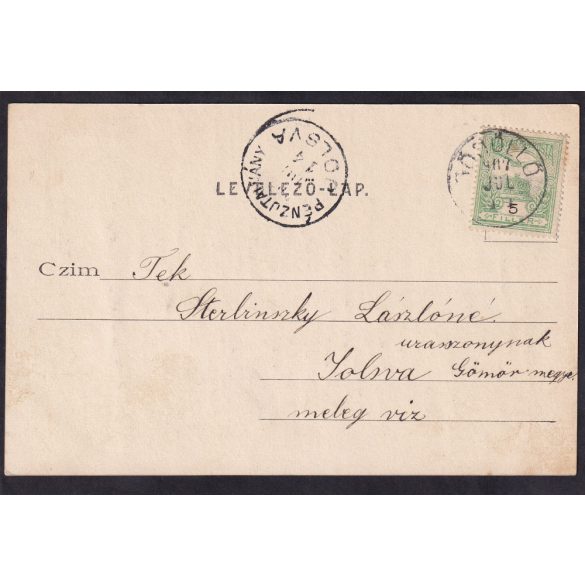 LEVELEZŐ-LAP.
JOLSVA
PÉNZUTALVÁNY
907
JUL
5
FILLÉR
Czim Tek
Sterbinszky Lászlóné
uraszonynak
Jolsva Gömör megye
meleg viz